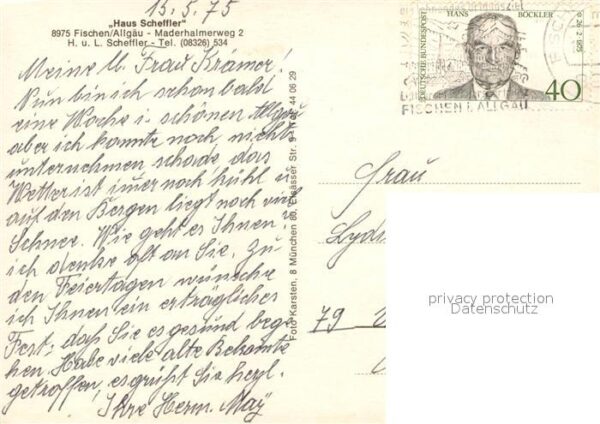 15.5.75
„Haus Scheffler"
8975 Fischen/Allgäu - Maderhalmerweg 2
H. u. L. Scheffler - Tel. (08326) 534
Meine l. Frau Krämer!
Nun bin ich schon bald
eine Woche i. schönen Allgäu
aber ich konnte noch nichts
unternehmen schade das
Wetter ist immer noch kühl u.
auf den Bergen liegt noch viel
Schnee. Wie geht es Ihnen
ich denke oft an Sie. Zu
den Feiertagen wünsche
ich Ihnen ein erträgliches
Fest, daß Sie es gesund bege-
hen. Habe viele alte Bekannte
getroffen, es grüßt Sie herzl.
Ihre Herm. May
Foto Karsten, 8 München 80, Elsässer Str. Tel. 44 06 29
DEUTSCHE BUNDESPOST
HANS BÖCKLER
26 2 1875
40
FISCHEN I. ALLGÄU
Frau
Lydi
79
privacy protection
Datenschutz